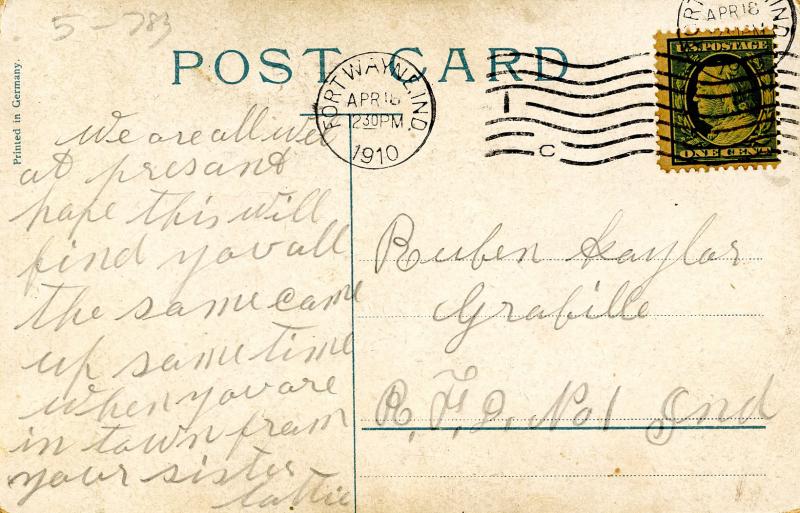 5-783
POST CARD
Printed in Germany.
FORT WAYNE, IND.
APR 18
230PM
1910
C
APR 18
U.S. POSTAGE
ONE CENT
we are all well
at presant
hope this will
find you all
the same came
up same time
when you are
in town fram
your sister
Lattie
Ruben Kaylor
Grabille
R. F. D. No1 Ind